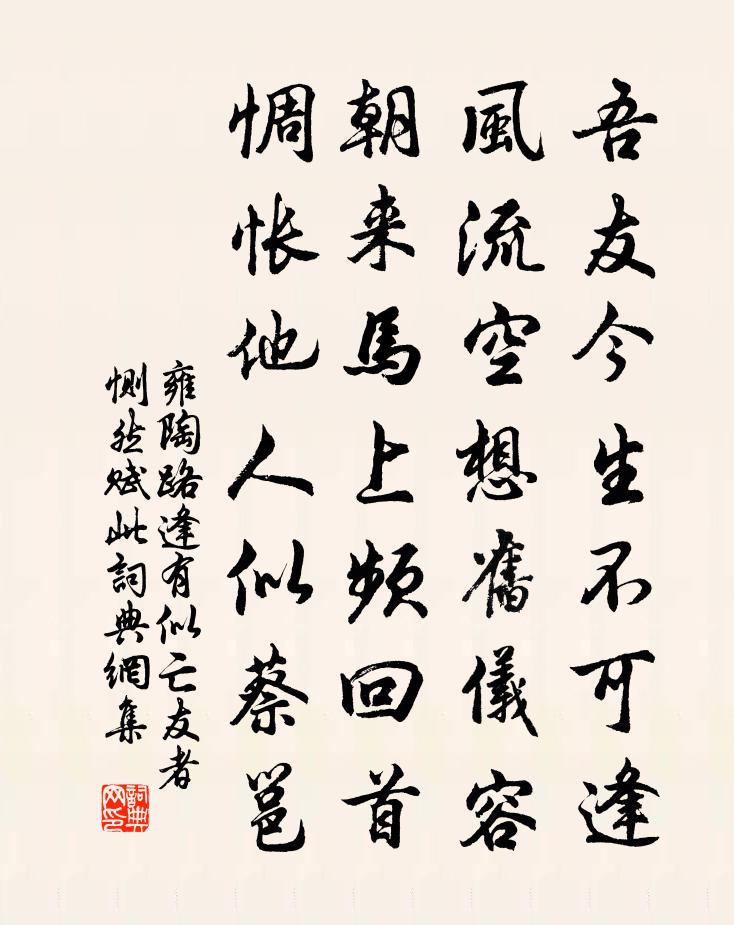 吾友今生不可逢
風流空想舊儀容
朝来馬上頻回首
惆怅他人似蔡邕
雍陶路逢有似亡友者
惻然賦此詞典網集
詞典网印